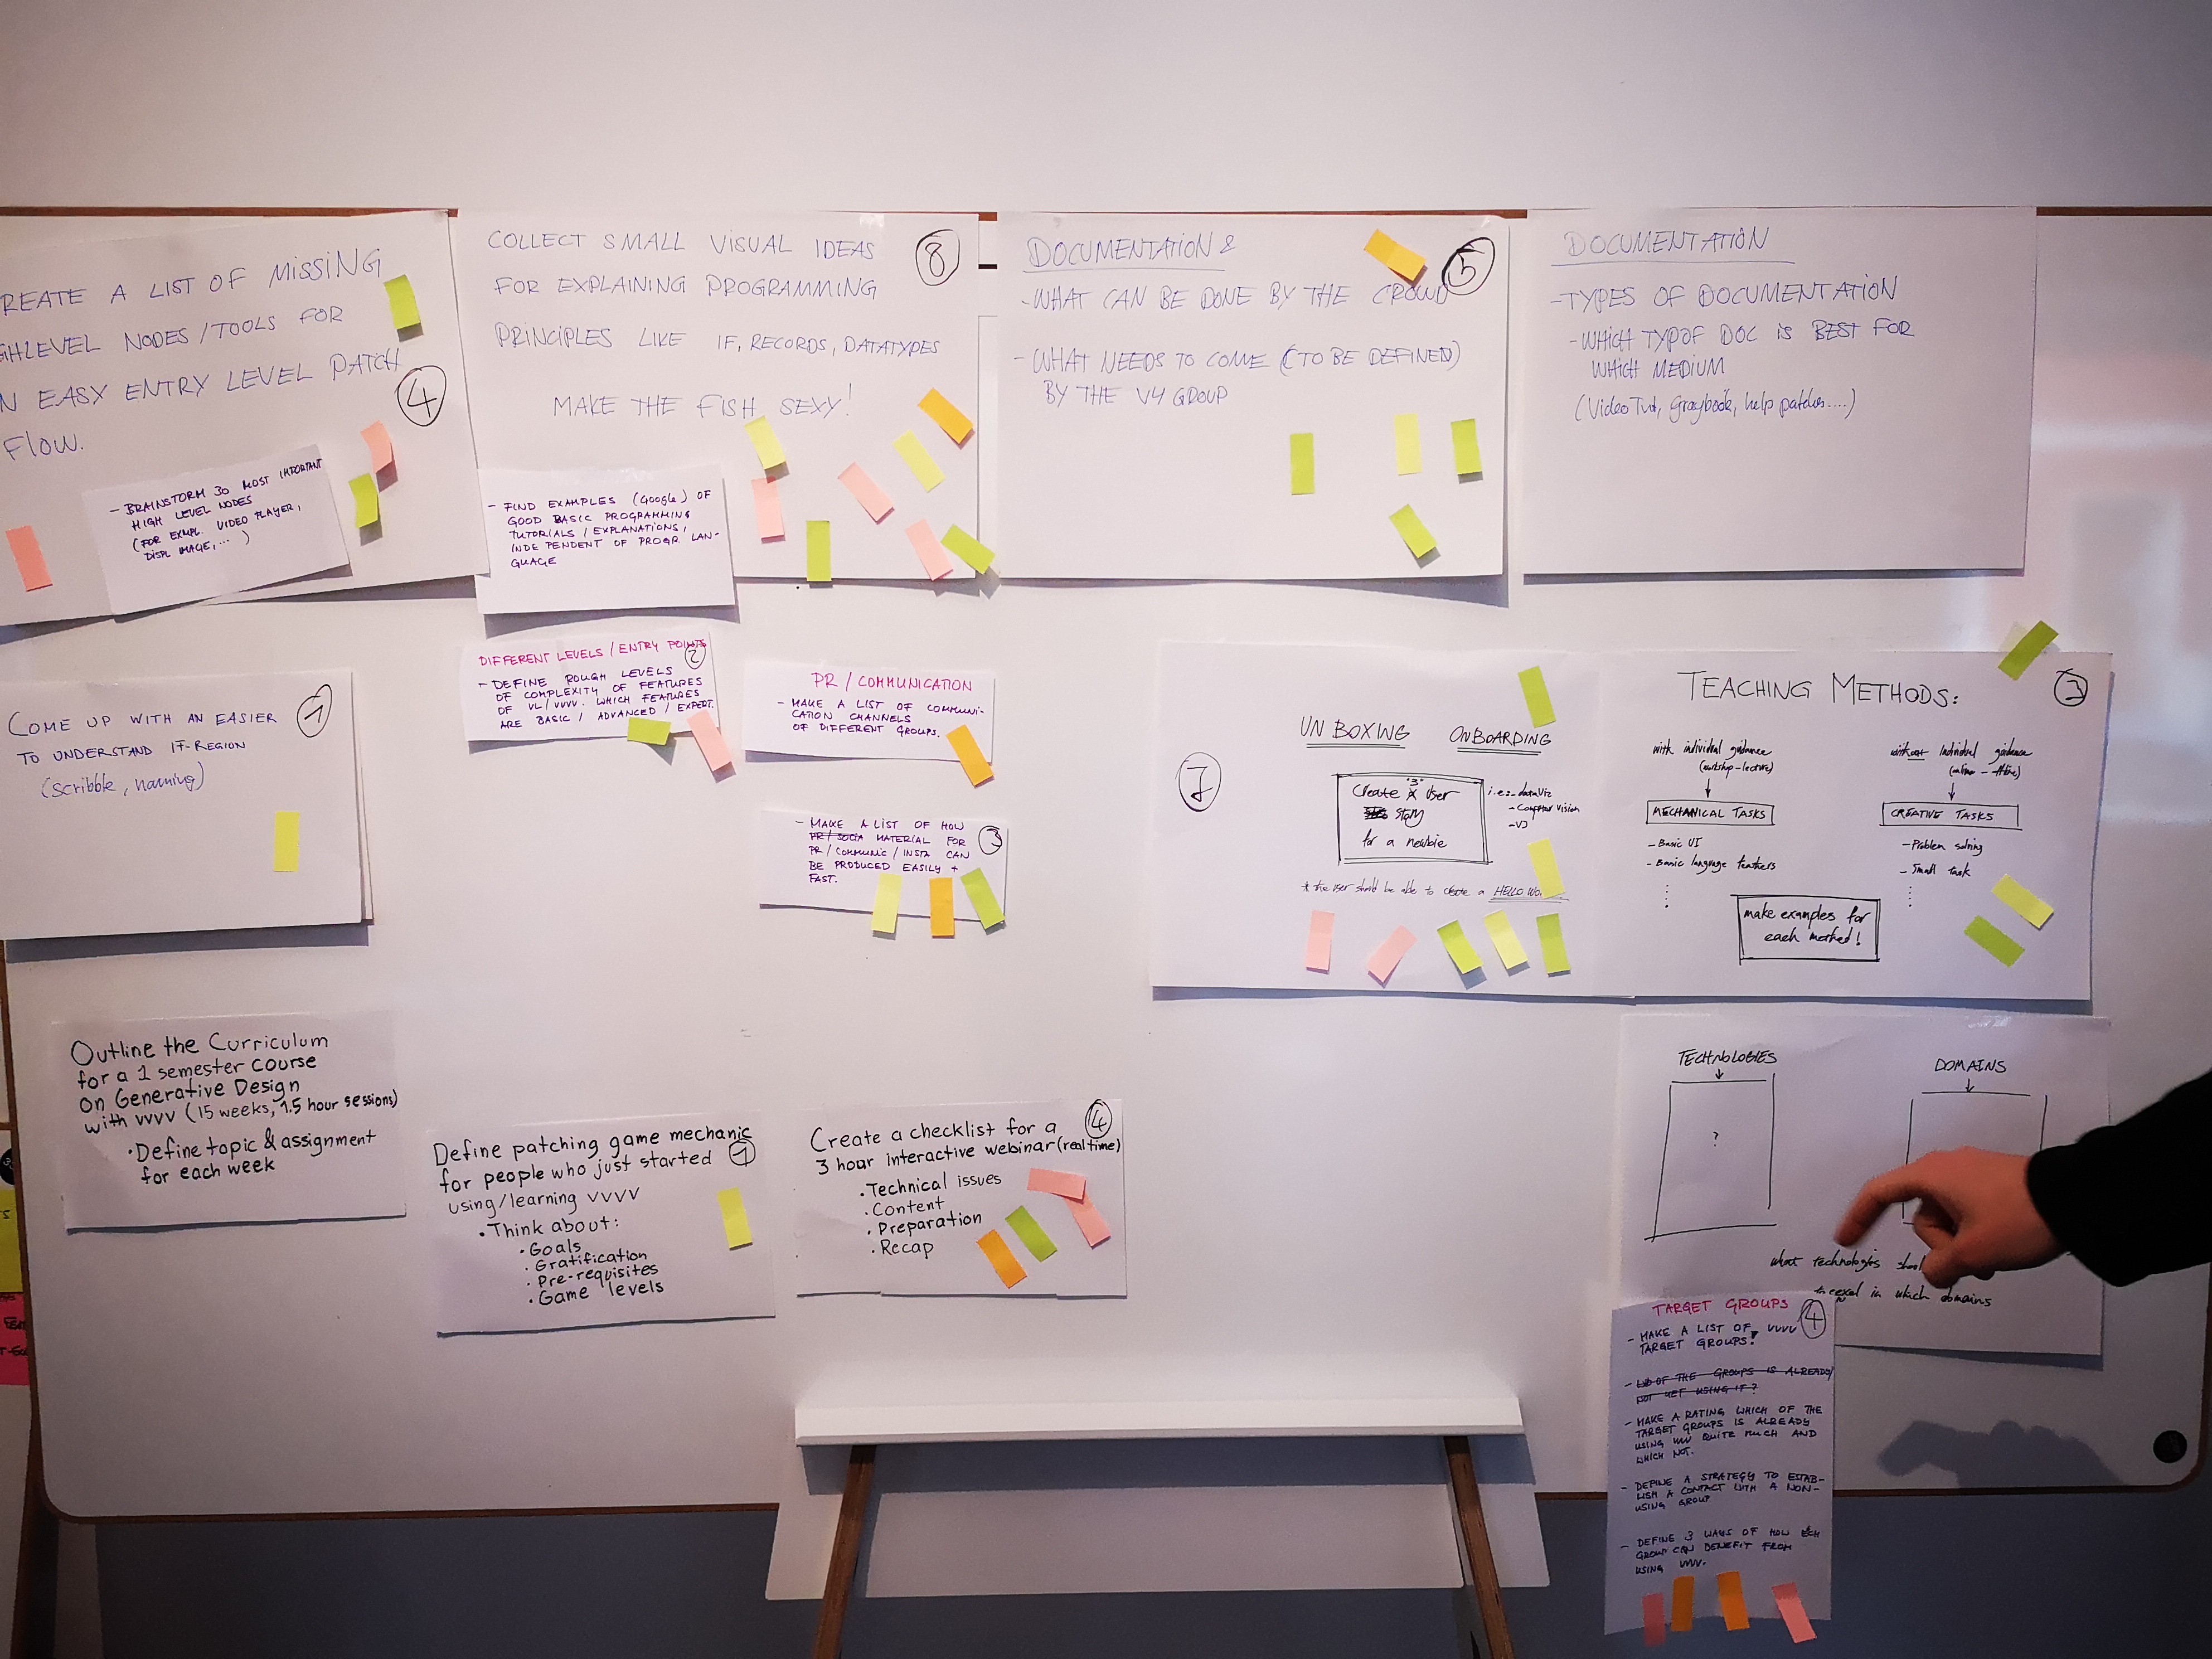 REATE A LIST OF MISSING
GHLEVEL NODES / TOOLS FOR
N EASY ENTRY LEVEL PATCH
FLOW.
4
- BRAINSTORM 30 MOST IMPORTANT
HIGH LEVEL NODES
(FOR EXMPL. VIDEO PLAYER,
DISPL IMAGE, ... )
COLLECT SMALL VISUAL IDEAS
FOR EXPLAINING PROGRAMMING
PRINCIPLES LIKE IF, RECORDS, DATATYPES
MAKE THE FISH SEXY!
8
- FIND EXAMPLES (Google) OF
GOOD BASIC PROGRAMMING
TUTORIALS / EXPLANATIONS,
INDEPENDENT OF PROGR. LAN-
GUAGE
DOCUMENTATION &
5
- WHAT CAN BE DONE BY THE CROWD
- WHAT NEEDS TO COME (TO BE DEFINED)
BY THE V4 GROUP
DOCUMENTATION
- TYPES OF DOCUMENTATION
- WHICH TYP OF DOC IS BEST FOR
WHICH MEDIUM
(Video Tut, Graybook, help patches....)
COME UP WITH AN EASIER
TO UNDERSTAND IF-REGION
(scribble, naming)
1
DIFFERENT LEVELS / ENTRY POINTS
2
- DEFINE ROUGH LEVELS
OF COMPLEXITY OF FEATURES
OF VL/VVVV. WHICH FEATURES
ARE BASIC / ADVANCED / EXPERT.
PR / COMMUNICATION
- MAKE A LIST OF COMMUNI-
CATION CHANNELS
OF DIFFERENT GROUPS.
- MAKE A LIST OF HOW
PR/SOCIA MATERIAL FOR
PR/COMMUNIC/INSTA CAN
BE PRODUCED EASILY +
FAST.
3
7
UNBOXING ONBOARDING
Create 3 User
story
for a newbie
i.e. - dataviz
- Computer vision
- VJ
* the user should be able to create a HELLO WO
TEACHING METHODS:
3
with individual guidance
(workshop - lecture)
MECHANICAL TASKS
- Basic UI
- Basic language features
without individual guidance
(online - offline)
CREATIVE TASKS
- Problem solving
- Small task
make examples for
each method!
Outline the Curriculum
for a 1 semester course
on Generative Design
with vvvv (15 weeks, 1.5 hour sessions)
• Define topic & assignment
for each week
Define patching game mechanic
for people who just started
using/learning vvvv
1
• Think about:
• Goals
• Gratification
• Pre-requisites
• Game levels
Create a checklist for a
3 hour interactive webinar (real time)
4
• Technical issues
• Content
• Preparation
• Recap
TECHNOLOGIES
?
DOMAINS
what technologies
in which domains
TARGET GROUPS
4
- MAKE A LIST OF VVVV
TARGET GROUPS!
OF THE GROUPS IS ALREADY/
NOT YET USING IT?
- MAKE A RATING WHICH OF THE
TARGET GROUPS IS ALREADY
USING VVVV QUITE MUCH AND
WHICH NOT.
- DEFINE A STRATEGY TO ESTAB-
LISH A CONTACT WITH A NON-
USING GROUP
- DEFINE 3 WAYS OF HOW ECH
GROUP CAN BENEFIT FROM
USING VVVV.